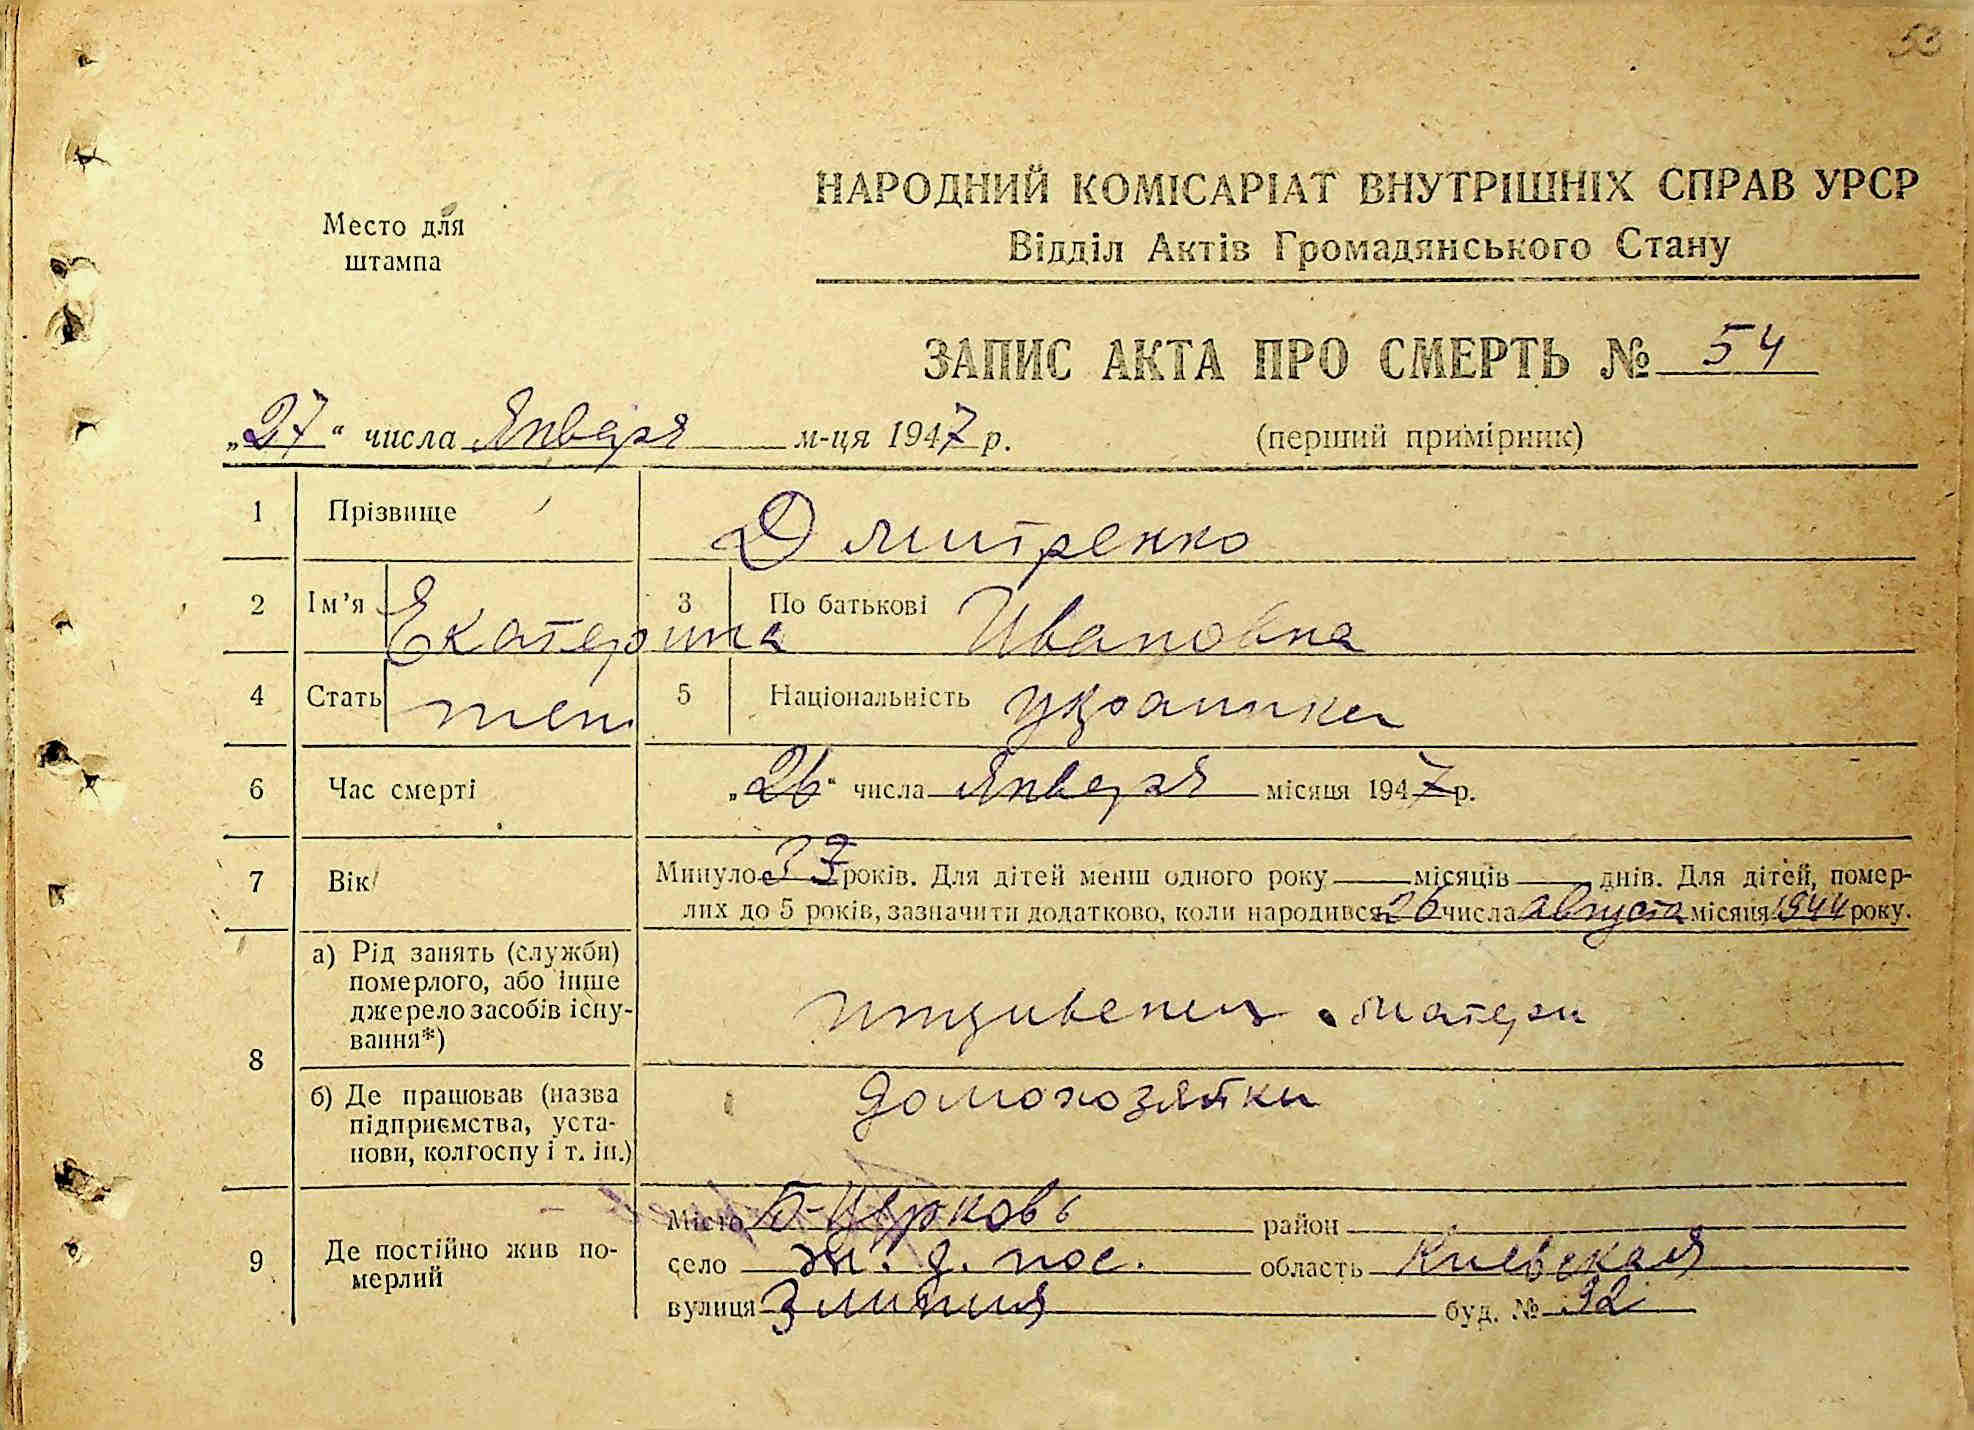 53
НАРОДНИЙ КОМІСАРІАТ ВНУТРІШНІХ СПРАВ УРСР
Место для штампа
Відділ Актів Громадянського Стану
ЗАПИС АКТА ПРО СМЕРТЬ № 54
„27“ числа Января м-ця 1947 р. (перший примірник)
1 Прізвище Дмитренко
2 Ім'я Екатерина 3 По батькові Ивановна
4 Стать жен 5 Національність украинка
6 Час смерті „26“ числа Января місяця 1947 р.
7 Вік Минуло 3 років. Для дітей менш одного року місяців днів. Для дітей, помер-
лих до 5 років, зазначити додатково, коли народився 26 числа Августа місяця 1944 року.
8 а) Рід занять (служби)
померлого, або інше
джерело засобів існу-
вання*)
иждивенец матери
б) Де працював (назва
підприємства, уста-
нови, колгоспу і т. ін.)
домохозяйки
9 Де постійно жив по-
мерлий
Місто Б-Церковь район
село ж. д. пос. область Киевская
вулиця 3 линия буд. № 32